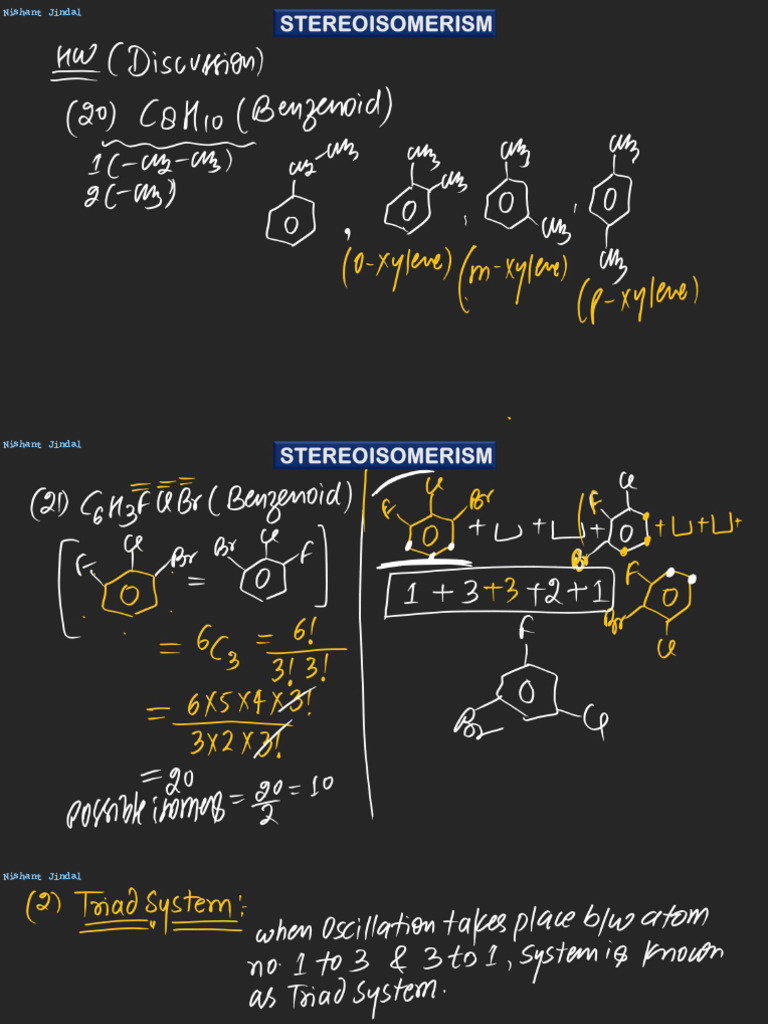 Nishant Jindal
STEREOISOMERISM
HW (Discussion)
(20) C8H10 (Benzenoid)
1(-CH2-CH3)
2(-CH3)
CH2-CH3
CH3
CH3
CH3
CH3
CH3
CH3
, , ,
(o-xylene) (m-xylene) (p-xylene)
Nishant Jindal
STEREOISOMERISM
(21) C6H3FClBr (Benzenoid)
[F Cl Br = Br Cl F]
= 6C3 = 6!/3! 3!
= 6×5×4×3!/3×2×3!
= 20
possible isomers = 20/2 = 10
F Cl Br + + + F Cl Br + + +
1 + 3 + 3 + 2 + 1
F Br Cl
F
Br Cl
Nishant Jindal
(2) Triad System:
when Oscillation takes place b/w atom
no. 1 to 3 & 3 to 1, System is known
as Triad System.